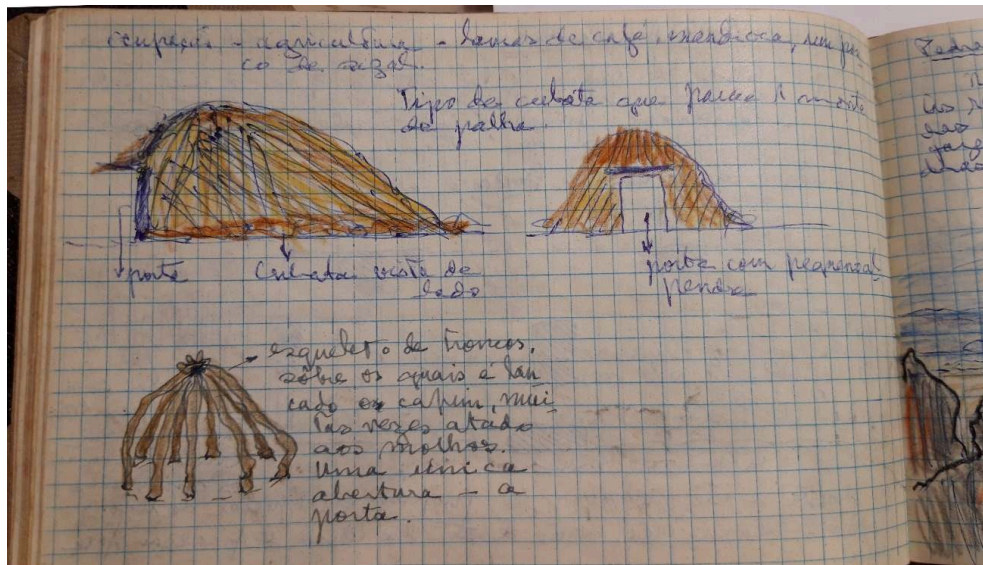 ocupação - agricultura - lavras de café, mandioca, um pou
co de sisal.
Tipo de cubata que parece
de palha.
porta
Cubata vista de
lado
porta com pequena
esqueleto de troncos,
sôbre os quais é lan
çado o capim, mui
tas vezes atado
aos molhos.
Uma única
abertura - a
porta.
Pedra